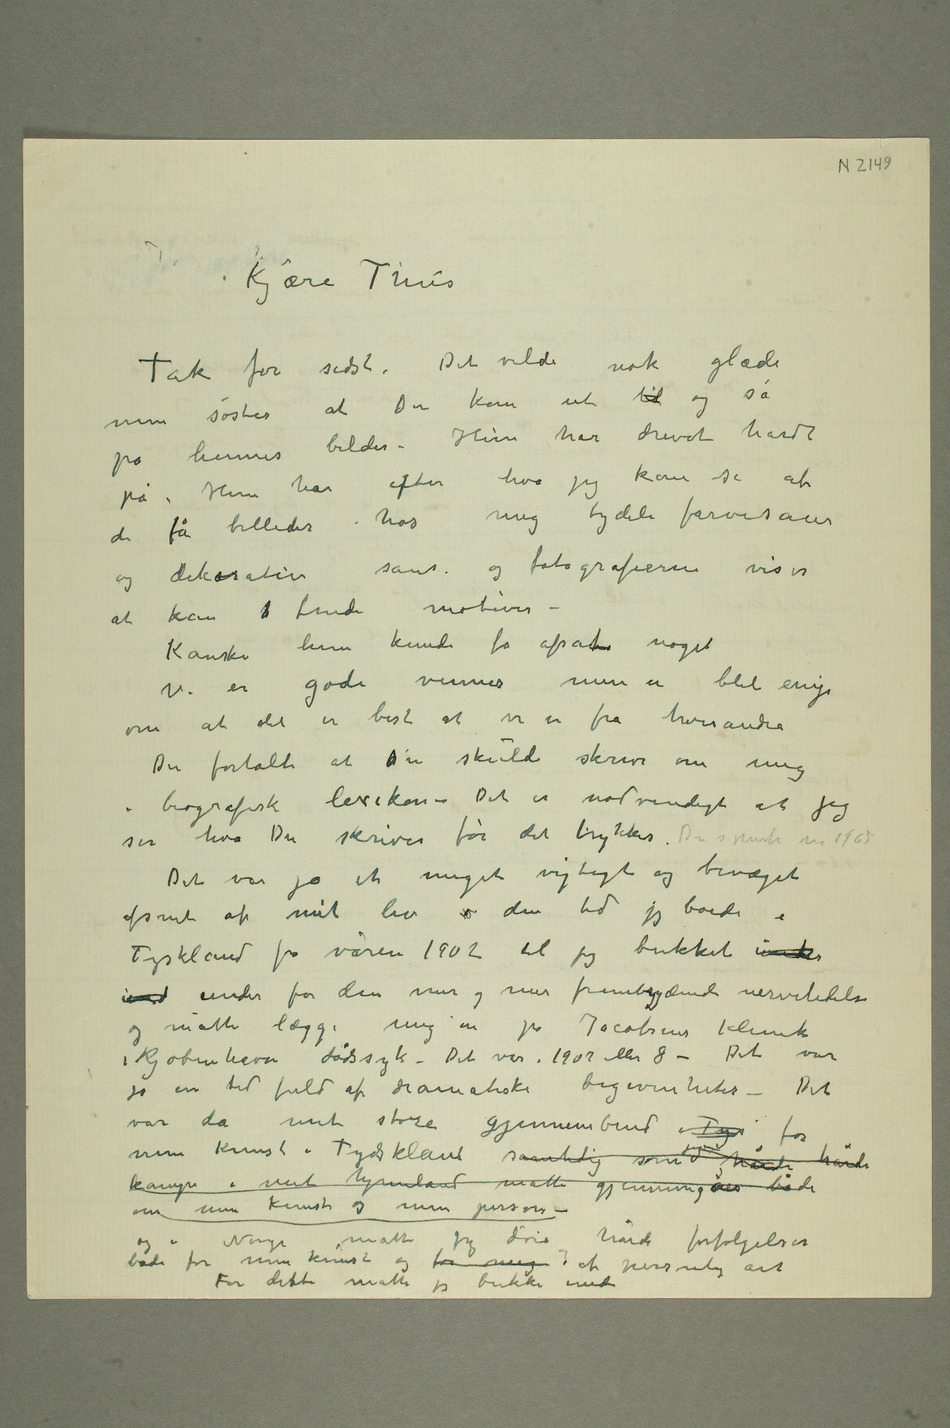 N 2149
Kjære Thiis
Tak for sidst. Det vilde nok glæde
min søster at Du kom ut til og så
på hennes bilder – Hun har drevet hardt
på. Hun har efter hva jeg kan se af
de få billeder hos mig tydeli farvesans
og dekorativ sans. og fotografierne viser
at kan finde motiver –
Kanske hun kunde få afsat noget
Vi er gode venner men er blet enig
om at det er best at vi er fra hverandre
Du fortalte at Du skulde skrive om mig
i biografisk lexikon – Det er nødvendigt at jeg
ser hva Du skriver før det trykkes. Du spurte 1908
Det var jo et meget vigtigt og bevæget
afsnit af mit liv den tid jeg boede i
Tyskland fra våren 1902 til jeg bukket under
ind under for den mer og mer frembrydende nervelidelse
og måtte lægge mig in på Jacobsens Klinik
i Kjøbenhavn dødssyk – Det var i 1907 eller 8 – Det var
jo en tid fuld af dramatiske begivenheter – Det
var da mit store gjennembrud i Tys for
min kunst i Tydskland samtidig som hårde hårde
kampe i mit hjemland måtte gjennemgåes både
om min kunst og min person –
og i Norge måtte jeg døie hårde forfølgelser
både for min kunst og for mig af personlig art
For dette måtte jeg bukke under